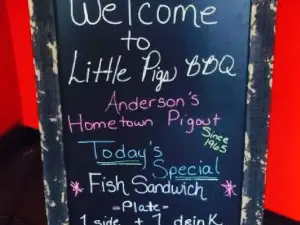 Welcome
to
Little Pigs BBQ
Anderson's
Hometown Pigout
Since
1965
Today's
Special
* Fish Sandwich *
- Plate -
1 side + 1 drink